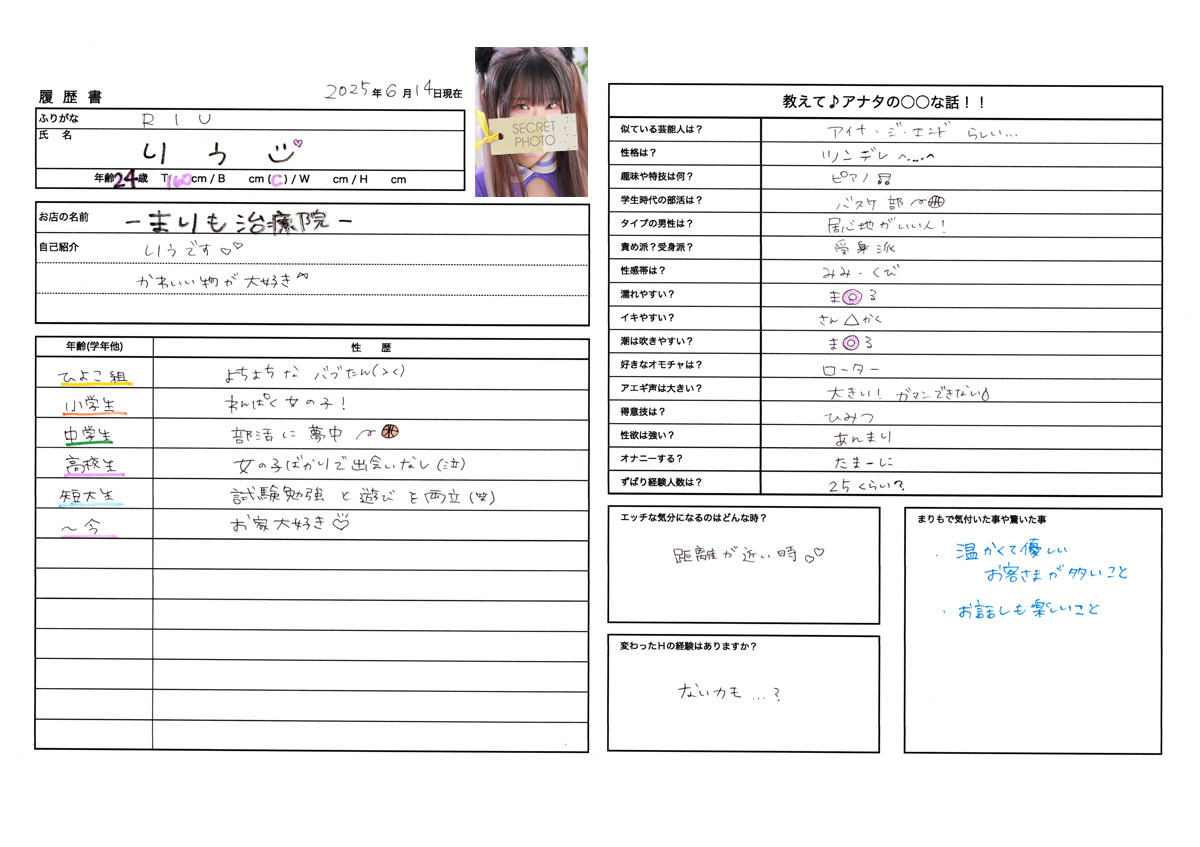 履歴書
2025年6月14日現在
ふりがな RIU
氏名 りう
年齢24歳 T160cm / B cm (C) / W cm / H cm
SECRET
PHOTO
お店の名前 -まりも治療院-
自己紹介 りうです♡♡
かわいい物が大好き
年齢(学年他) 性歴
ひよこ組 よちよちな バブたん(><)
小学生 わんぱく女の子!
中学生 部活に夢中
高校生 女の子ばかりで出会いなし(泣)
短大生 試験勉強と遊びを両立(笑)
〜今 お家大好き♡
教えて♪アナタの○○な話!!
似ている芸能人は? アイナ・ジ・エンド らしい…
性格は? ツンデレ
趣味や特技は何? ピアノ♫
学生時代の部活は? バスケ部
タイプの男性は? 居心地がいい人!
責め派?受身派? 受身派
性感帯は? みみ・くび
濡れやすい? ま◎る
イキやすい? さん△かく
潮は吹きやすい? ま◎る
好きなオモチャは? ローター
アエギ声は大きい? 大きい!ガマンできない
得意技は? ひみつ
性欲は強い? あんまり
オナニーする? たまーに
ずばり経験人数は? 25くらい?
エッチな気分になるのはどんな時?
距離が近い時♡♡
変わったHの経験はありますか?
ないかも…?
まりもで気付いた事や驚いた事
・温かくて優しい
お客さまが多いこと
・お話しも楽しいこと